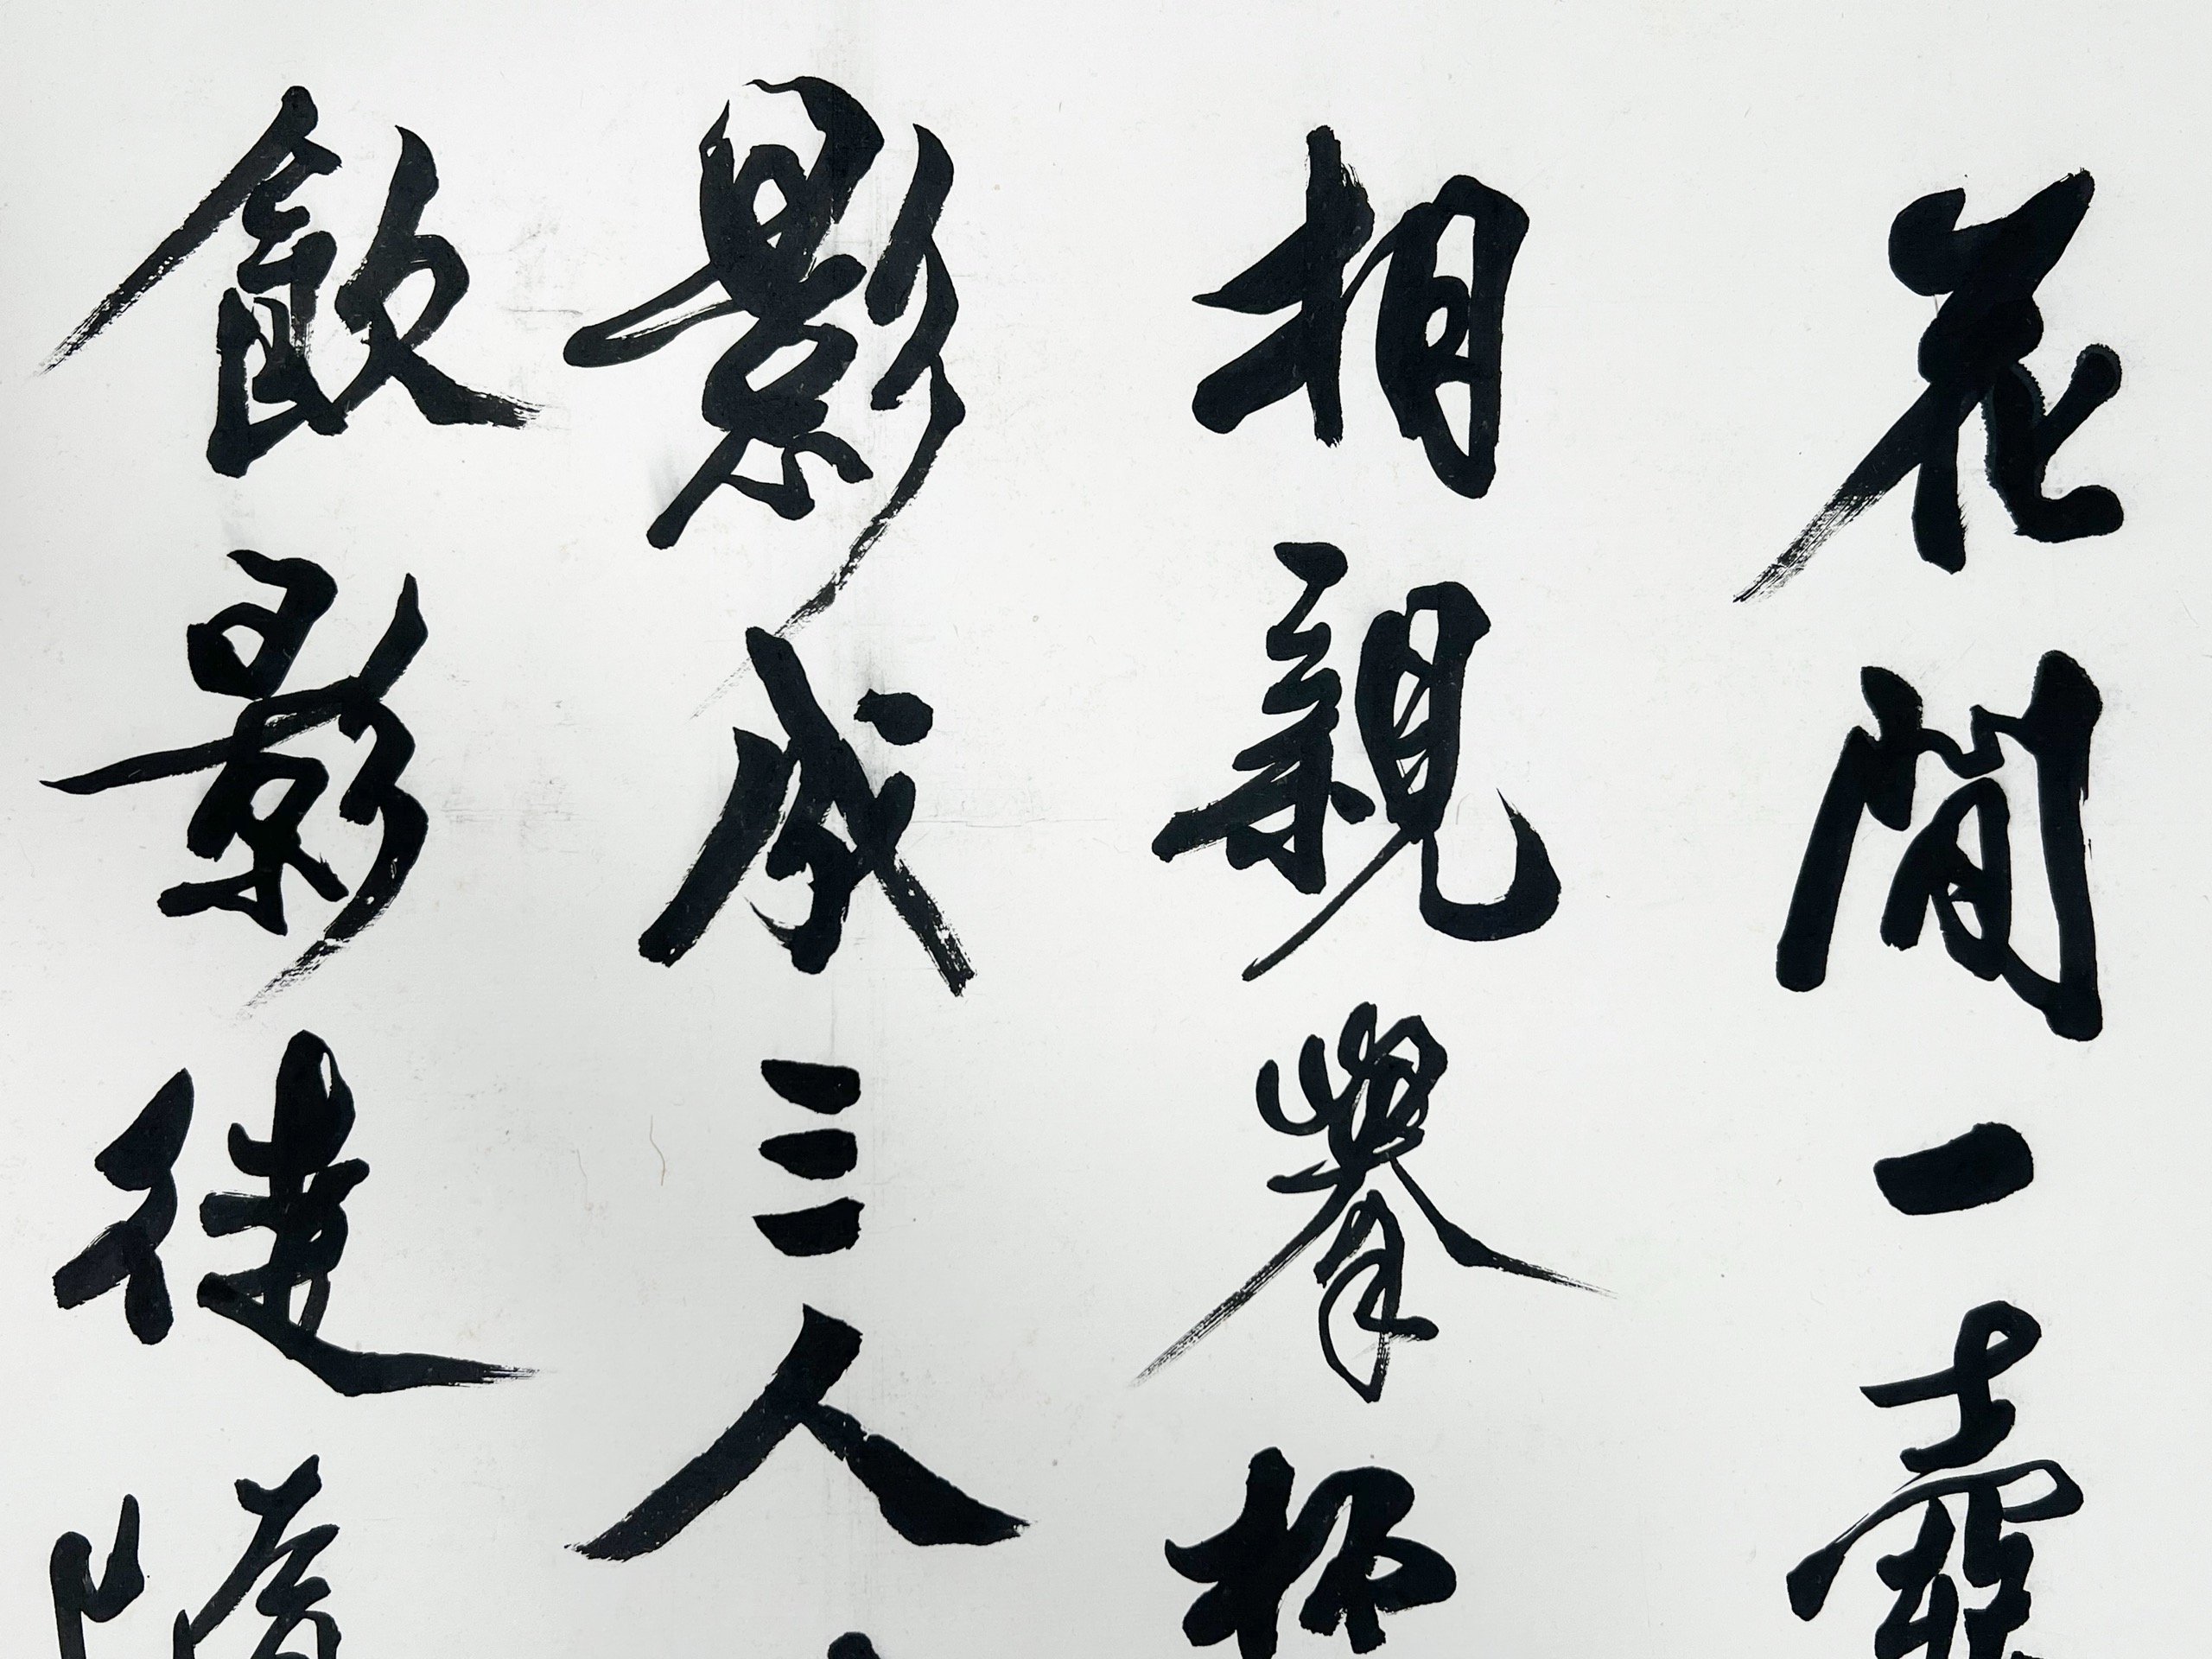 花間一壺
相親舉杯
影成三人
飲影徒隨